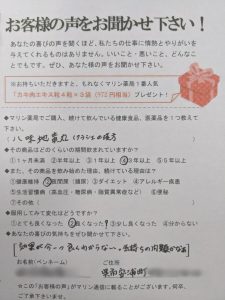 お客様の声をお聞かせ下さい！
あなたの喜びの声を聞くほど、私たちの仕事に情熱とやりがいを
与えてくれるものはありません。いいこと・悪いこと、どんなこ
とでもです。ぜひ、あなたの声をお聞かせ下さい。
※お持ちいただきますと、もれなくマリン薬局１番人気
「カキ肉エキス粒４粒×３袋（972円相当）プレゼント！
◆マリン薬局でご購入、続けて飲んでいる健康食品、医薬品を１つ教えて
下さい。
八味地黄丸
◆その商品はどのくらいの期間飲まれていますか？
①１ヶ月未満 ②半年以上 ③１年以上 ④３年以上 ⑤５年以上
◆また、その商品を飲み始めた理由は、継続している理由は？
①健康維持 ②医関節（膝関） ③ダイエット ④アレルギー疾患
⑤生活習慣病（高血圧・糖尿病・脂質異常症など） ⑥便秘
⑦その他（ ）
◆服用してみて変化はどうですか？
①とても良くなった ②良くなった ③少し良くなった ④分からない
◆あなたの喜びの気持ちをぜひ聞かせて下さい。
お名前（ペンネーム） ご住所
※この「お客様の声」がマリン通信に載ることがございます。何卒、
ご了承下さいませ。